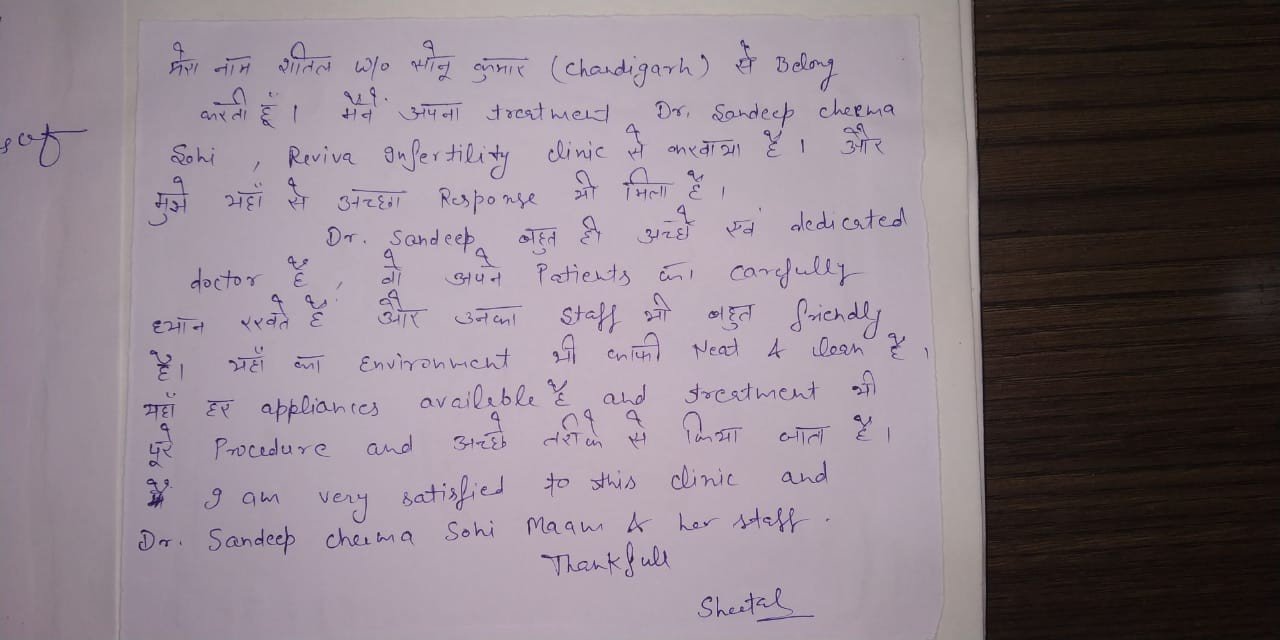 मेरा नाम शीतल w/o सोनू कुमार (Chandigarh) से Belong
करती हूँ। मैंने अपना treatment Dr. Sandeep cheema
Sohi, Reviva Infertility clinic से करवाया है। और
मुझे यहाँ से अच्छा Response भी मिला है।
Dr. Sandeep बहुत ही अच्छे एवं dedicated
doctor है, वो अपने Patients का carefully
ध्यान रखते हैं और उनका staff भी बहुत friendly
है। यहाँ का Environment भी काफी Neat & clean है।
यहाँ हर appliances available है and treatment भी
पूरे Procedure and अच्छे तरीके से किया जाता है।
I am very satisfied to this clinic and
Dr. Sandeep cheema Sohi Maam & her staff.
Thankfull
Sheetal